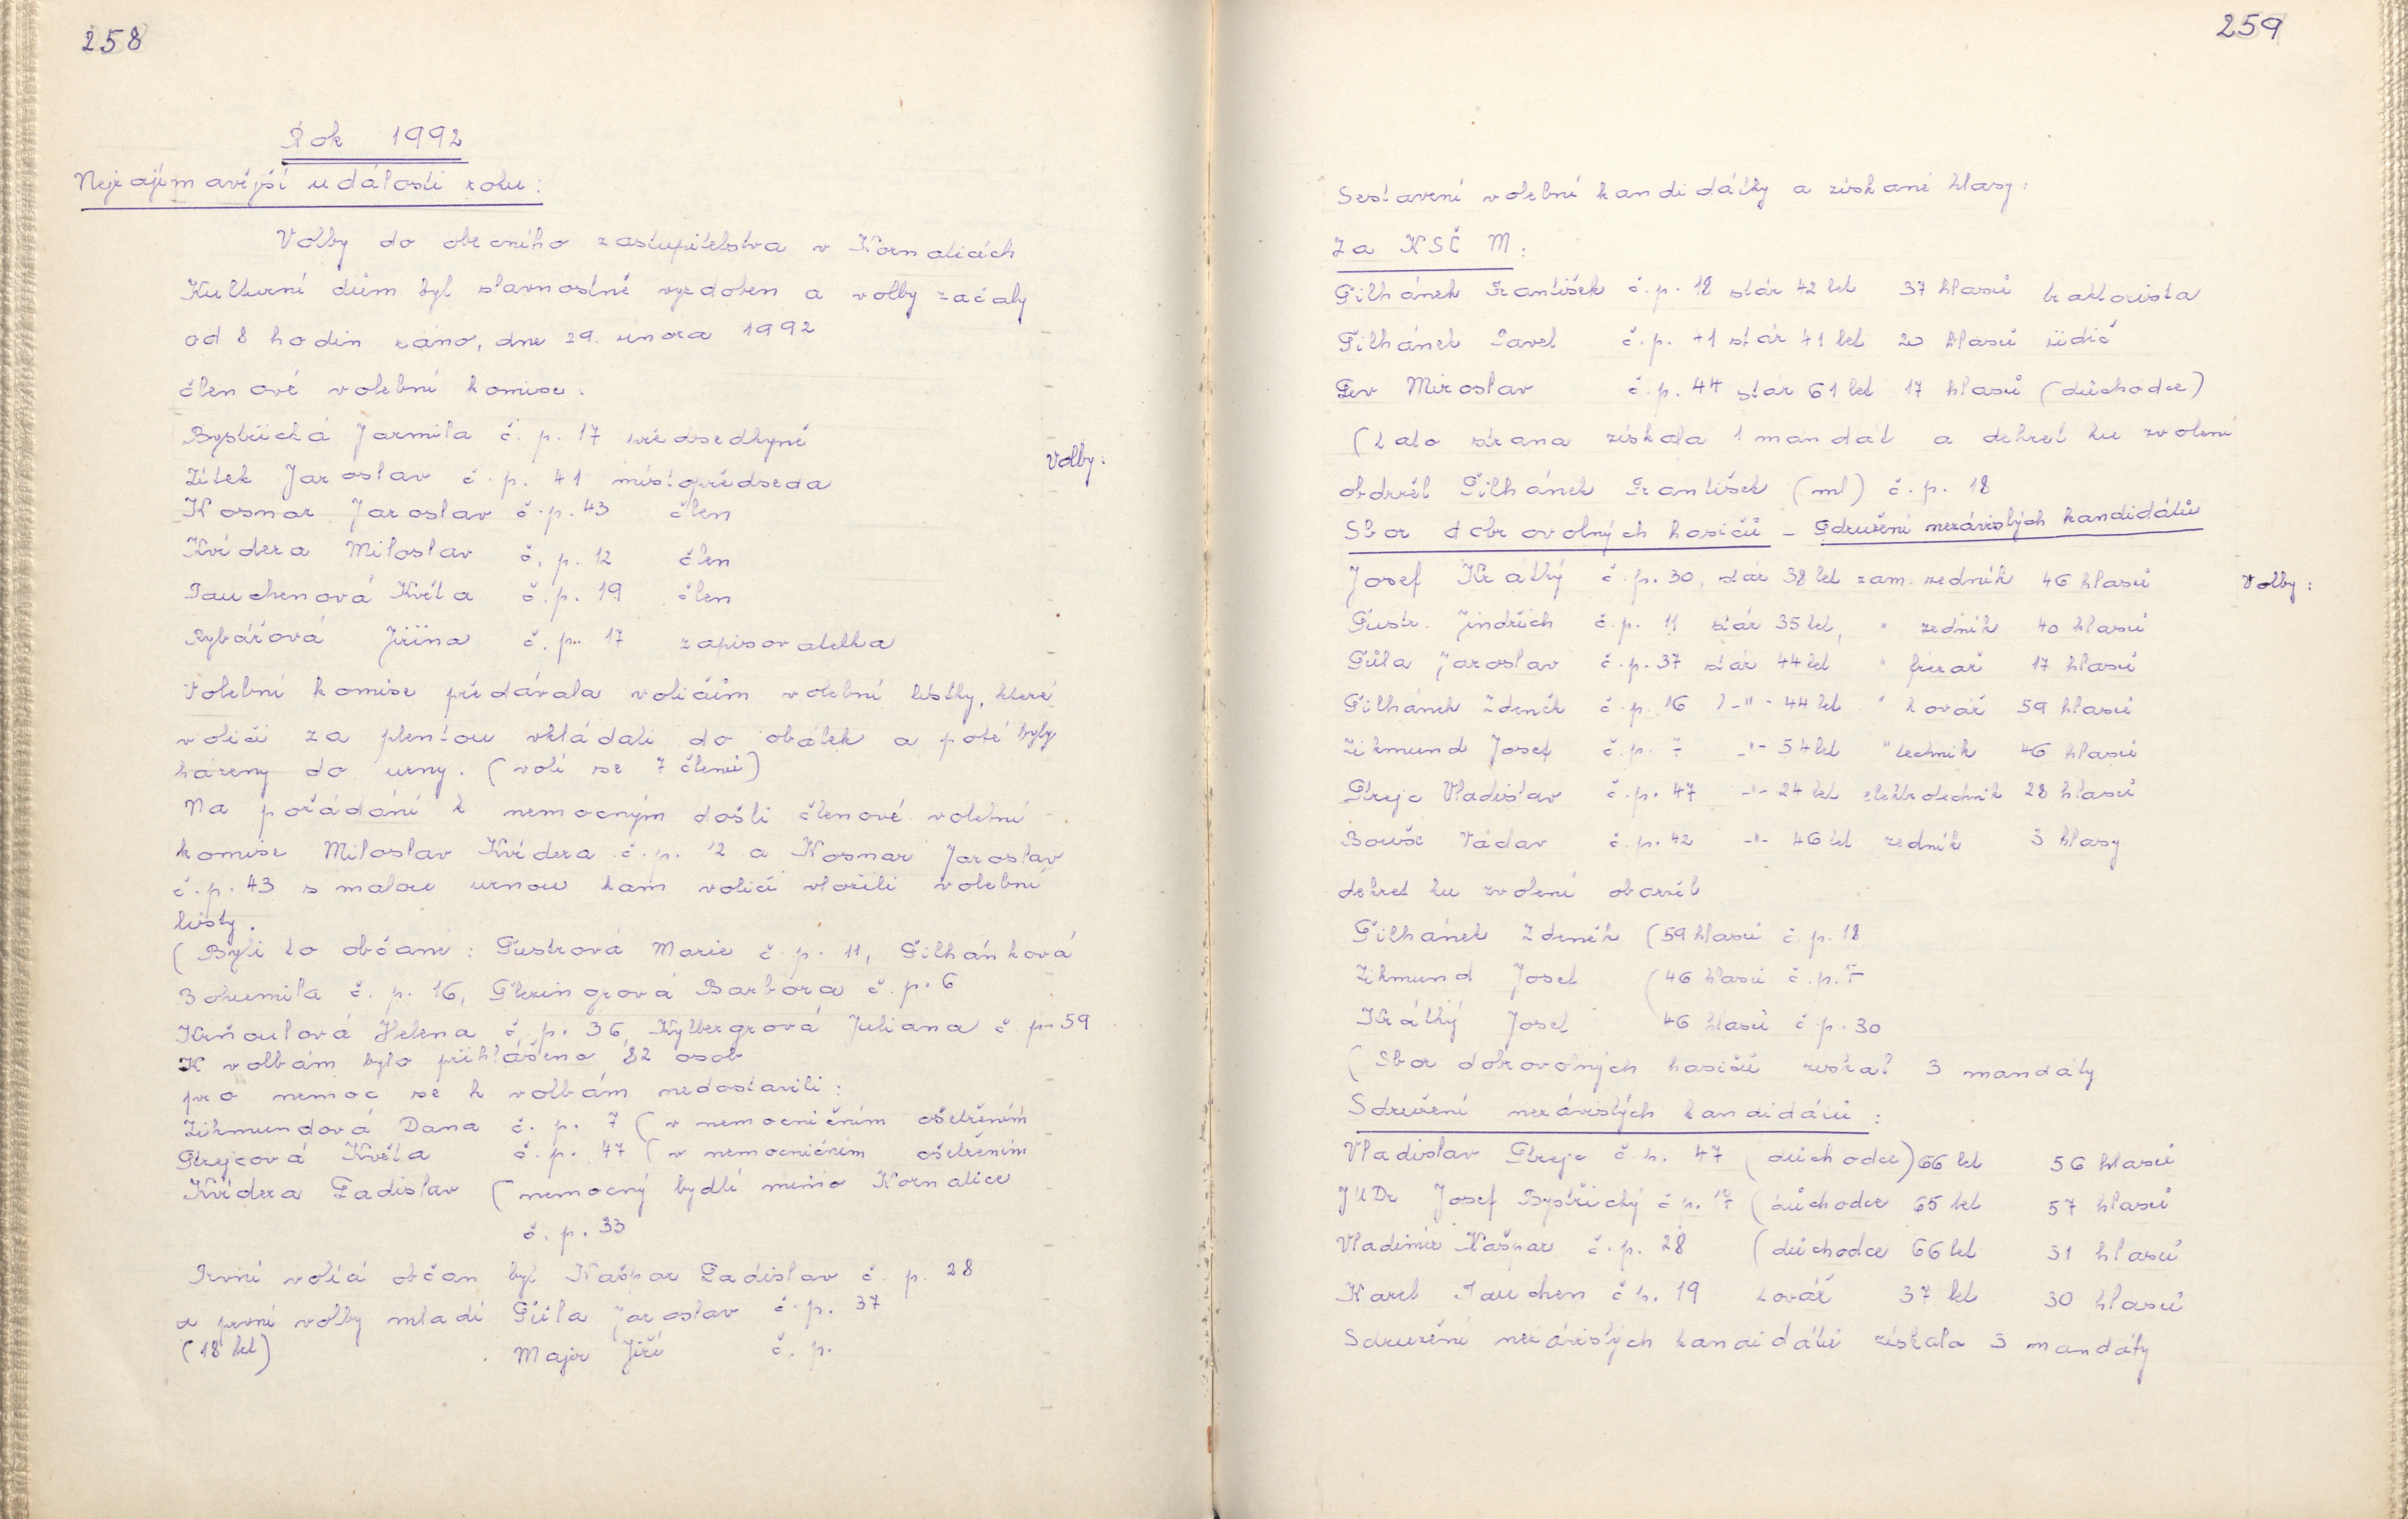 258
Rok 1992
Nejzajímavější události roku:
Volby do obecního zastupitelstva v Kornaticích
Kulturní dům byl slavnostně vyzdoben a volby začaly
od 8 hodin ráno, dne 29. února 1992
členové volební komise:
Bystřická Jarmila č. p. 17 předsedkyně
Volby:
Zítek Jaroslav č. p. 41 místopředseda
Kosnar Jaroslav č. p. 43 člen
Kvídera Miloslav č. p. 12 člen
Tauchenová Květa č. p. 19 člen
Rybářová Jiřina č. p. 17 zapisovatelka
Volební komise předávala voličům volební lístky, které
voliči za plentou vkládali do obálek a poté byly
házeny do urny. (volí se 7 členů)
Na požádání k nemocným došli členové volební
komise Miloslav Kvídera č. p. 12 a Kosnar Jaroslav
č. p. 43 s malou urnou kam voliči vložili volební
listy.
(Byli to občané: Šustrová Marie č. p. 11, Šilhánková
Bohumila č. p. 16, Barbora č. p. 6
Krňoulová Helena č. p. 36, Kylbergrová Juliana č. p. 59
K volbám bylo přihlášeno 82 osob
pro nemoc se k volbám nedostavili:
Zikmundová Dana č. p. 7 (v nemocničním ošetřením
Štrejcová Květa č. p. 47 (v nemocničním ošetřením
Kvídera Ladislav (nemocný bydlí mimo Kornatice
č. p. 33
První volící občan byl Kašpar Ladislav č. p. 28
a první volby mladí Šůla Jaroslav č. p. 37
(18 let) Majer Jiří č. p.
259
Sestavení volební kandidátky a získané hlasy:
Za KSČ M:
Šilhánek František č. p. 18 stár 42 let 37 hlasů traktorista
Šilhánek Pavel č. p. 41 stár 41 let 20 hlasů řidič
Lev Miroslav č. p. 44 stár 61 let 17 hlasů (důchodce)
(tato strana získala 1 mandát a dekret ku zvolení
obdržel Šilhánek František (ml) č. p. 18
Sbor dobrovolných hasičů - Sdružení nezávislých kandidátů
Josef Krátký č. p. 30, stár 38 let zam. zedník 46 hlasů
Volby:
Šustr. Jindřich č. p. 11 stár 35 let, " zedník 40 hlasů
Šůla Jaroslav č. p. 37 stár 44 let " frézař 17 hlasů
Šilhánek Zdeněk č. p. 16 -"- 44 let " kovář 59 hlasů
Zikmund Josef č. p. 7 -"- 54 let " technik 46 hlasů
Štrejc Vladislav č. p. 47 -"- 24 let elektrotechnik 28 hlasů
Bouše Václav č. p. 42 -"- 46 let zedník 3 hlasy
dekret ku zvolení obdržel
Šilhánek Zdeněk (59 hlasů č. p. 18
Zikmund Josef (46 hlasů č. p. 7
Krátký Josef 46 hlasů č. p. 30
(Sbor dobrovolných hasičů získal 3 mandáty
Sdružení nezávislých kandidátů:
Vladislav Štrejc č. p. 47 (důchodce) 66 let 56 hlasů
JUDr Josef Bystřický č. p. 17 (důchodce 65 let 57 hlasů
Vladimír Kašpar č. p. 28 (důchodce 66 let 31 hlasů
Karel Tauchen č. p. 19 kovář 37 let 30 hlasů
Sdružení nezávislých kandidátů získala 3 mandáty